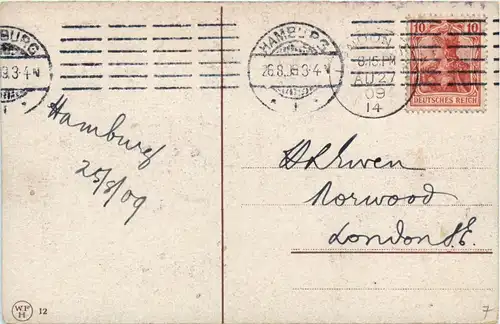 BURG
.9.3-4 V
HAMBURG
26.8.09.3-4 V
* 1 *
8.15 PM
AU 27
09
14
10 10
DEUTSCHES REICH
Hamburg
25/8/09
Norwood
London S.E.
WPH
12
7